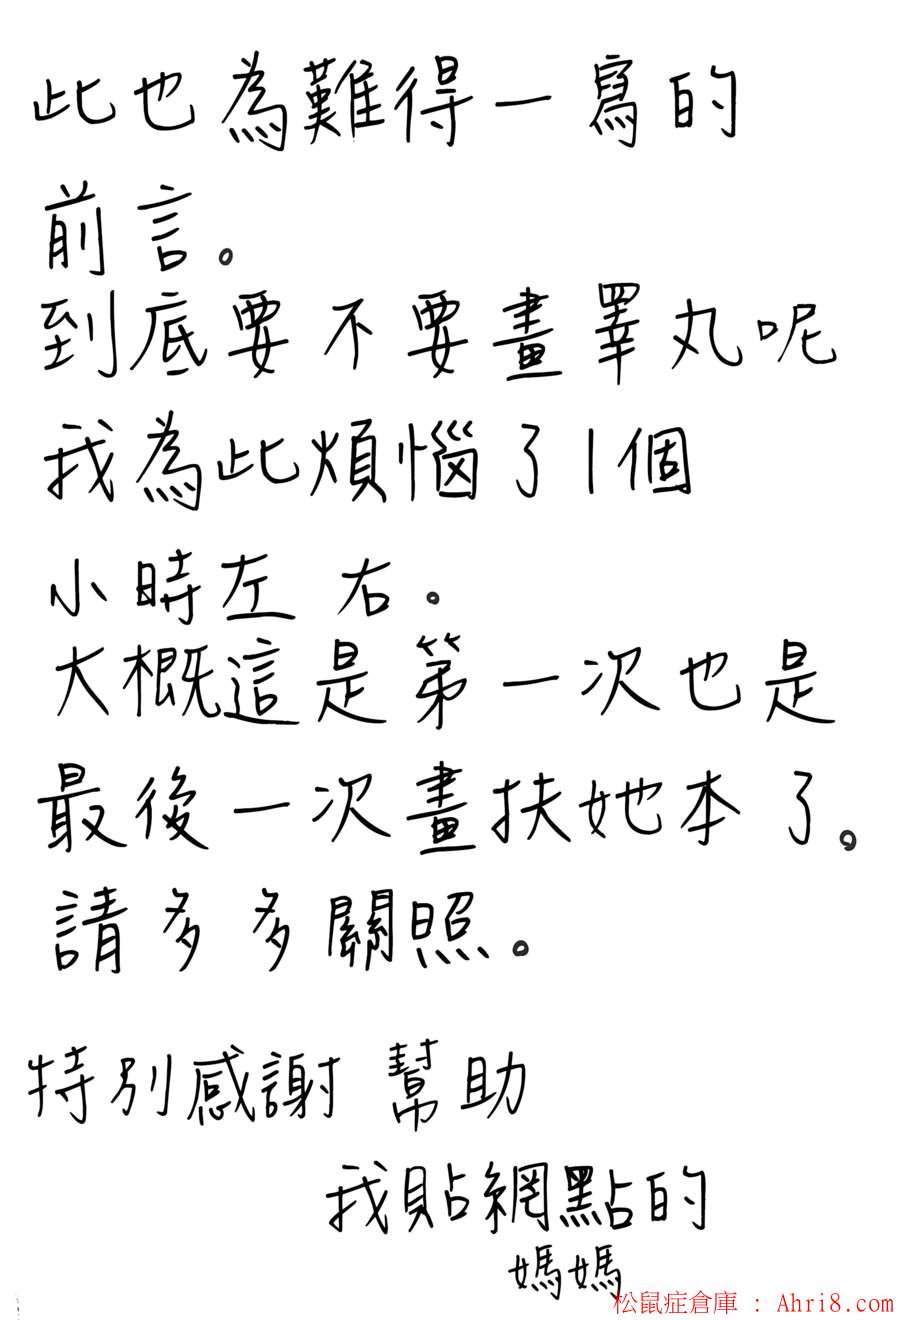 此也為難得一寫的
前言。
到底要不要畫睪丸呢
我為此煩惱了1個
小時左右。
大概這是第一次也是
最後一次畫扶她本了。
請多多關照。
特別感謝幫助
我貼網點的
媽媽
松鼠症倉庫 : Ahri8.com